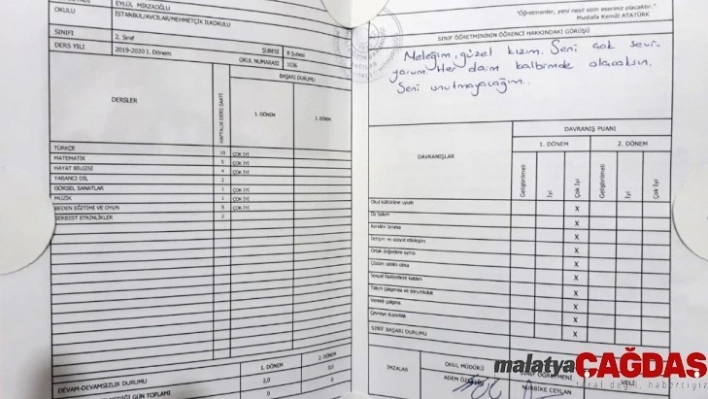 EYLÜL MİRZAOĞLU
OKULU
İSTANBUL/AVCILAR/MEHMETÇİK İLKOKULU
SINIFI
2. Sınıf
DERS YILI
2019-2020 I. Dönem
ŞUBESİ
OKUL NUMARASI
BAŞARI DURUMU
DERSLER
HAFTALIK DERS SAATİ
1. DÖNEM
2. DÖNEM
TÜRKÇE 10 ÇOK İYİ
MATEMATİK 5 ÇOK İYİ
HAYAT BİLGİSİ 4 ÇOK İYİ
YABANCI DİL 2
GÖRSEL SANATLAR 1 ÇOK İYİ
MÜZİK 1 ÇOK İYİ
BEDEN EĞİTİMİ VE OYUN 5 ÇOK İYİ
SERBEST ETKİNLİKLER 2
1. DÖNEM
2. DÖNEM
DEVAM-DEVAMSIZLIK DURUMU 2,0 0,0
GÜN TOPLAMI 0 0
"Öğretmenler, yeni nesil sizin eseriniz olacaktır."
Mustafa Kemal ATATÜRK
SINIF ÖĞRETMENİNİN ÖĞRENCİ HAKKINDAKİ GÖRÜŞÜ
Meleğim, güzel kızım. Seni çok sevi-
yorum. Her daim kalbimde olacaksın.
Seni unutmayacağım..
DAVRANIŞ PUANI
DAVRANIŞLAR
1. DÖNEM
2. DÖNEM
Geliştirilmeli
İyi
Çok İyi
Geliştirilmeli
İyi
Çok İyi
Okul kültürüne uyum X
Öz bakım X
Kendini tanıma X
İletişim ve sosyal etkileşim X
Ortak değerlere uyma X
Çözüm odaklı olma X
Sosyal faaliyetlere katılım X
Takım çalışması ve sorumluluk X
Verimli çalışma X
Çevreye duyarlılık X
SINIF BAŞARI DURUMU
İMZALAR
OKUL MÜDÜRÜ
SINIF ÖĞRETMENİ
VELİ
CEYLAN
malatyaÇAĞDAŞ